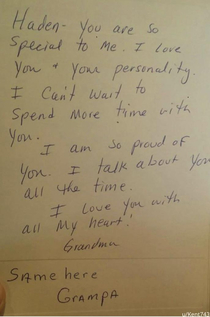 Haden- You are so
Special to Me. I love
You + Your personality.
I Can't Wait to
Spend More time with
You.
I am so proud of
You. I talk about You
all the time.
I Love You with
all My heart!
Grandma
SAMe here
GRAMPA
u/Kent743